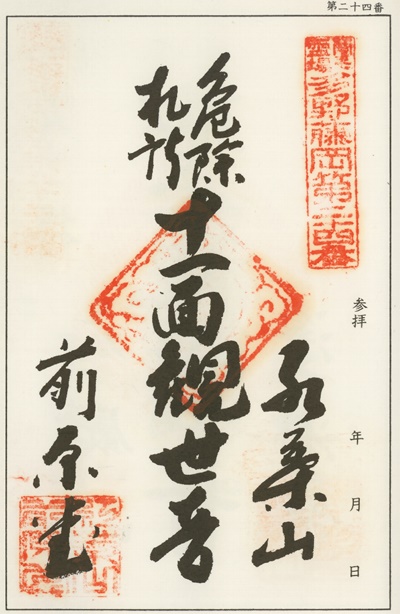 第二十四番
多野藤岡第二十四番
参拝 年 月 日
危除
札所
十一面観世音
前原堂